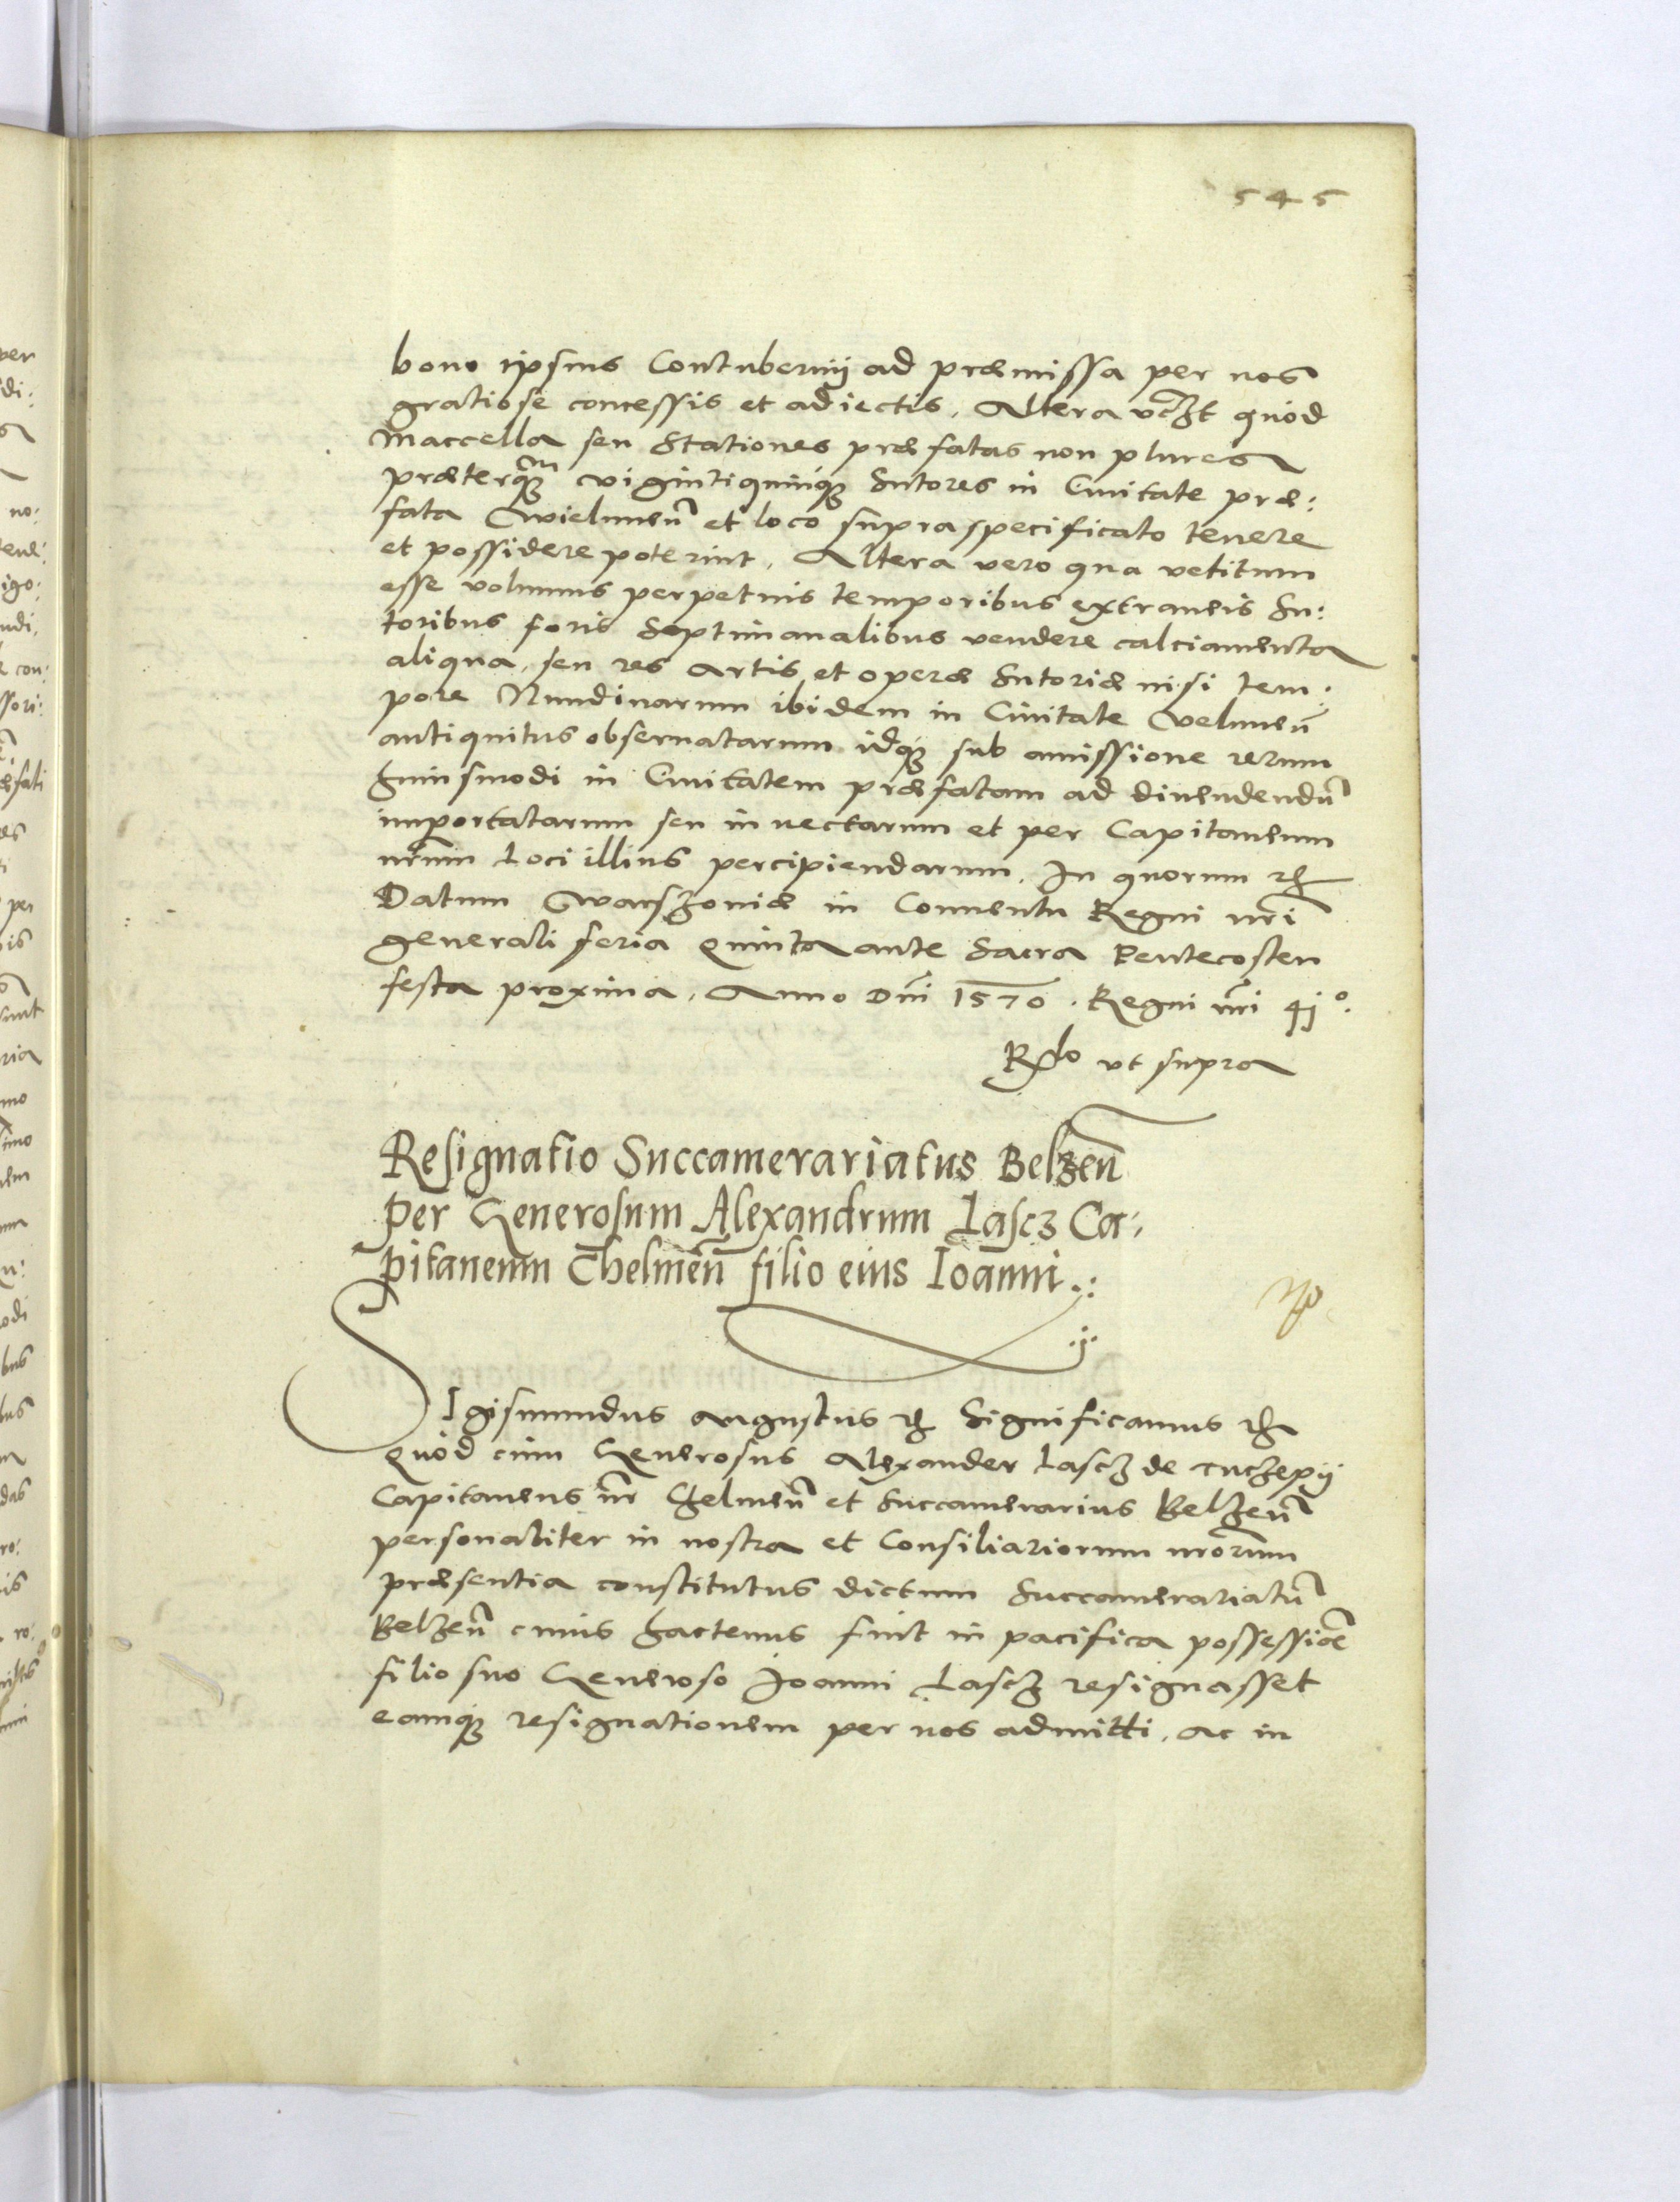 545
bono ipsius Contubernij ad præmissa per nos
gratiose concessis et adiectis. Altera vczt quòd
Maccella seu Stationes præfatas non plures
præterq̃m vigintiquinq; Sutores in Ciuitate præ:
fata Wieluneñ et loco supra specificato tenere
et possidere poterint. Altera vero qua vetitum
esse volumus perpetuis temporibus extraneis Su:
toribus foris Septimanalibus vendere calciamenta
aliqua, seu res artis et operæ Sutoriæ nisi tem:
pore Nundinarum ibidem in Ciuitate Veluneñ
antiquitus obseruatarum idq; sub amissione rerum
huiusmodi in Ciuitatem præfatam ad diuendendũ
importatarum seu inuectarum et per Capitaneum
nrũm Loci illius percipiendarum. In quorum etc
Datum Warszouiæ in Conuentu Regni nrĩ
generali feria quinta ante Sacra Pentecosten
festa proxima. Anno Dñi 1570. Regni nrĩ 41º.
Rlo vt supra
Resignatio Succamerariatus Belzeñ
per Generosum Alexandrum Lascz Ca:
pitaneum Chelmeñ filio eius Ioanni.:
Sigismundus augustus etc Significamus etc
quòd cum Generosus Alexander Lascz de Tuczepij
Capitaneus nr̃ Chelmeñ et Succamerarius Belzeñ
personaliter in nostra et Consiliariorum nrorum
præsentia constitutus dictum Succamerariatũ
Belzeñ cuius hactenus fuit in pacifica possessiõe
filio suo Generoso Joanni Lascz resignasset
eamq; resignationem per nos admitti, ac in